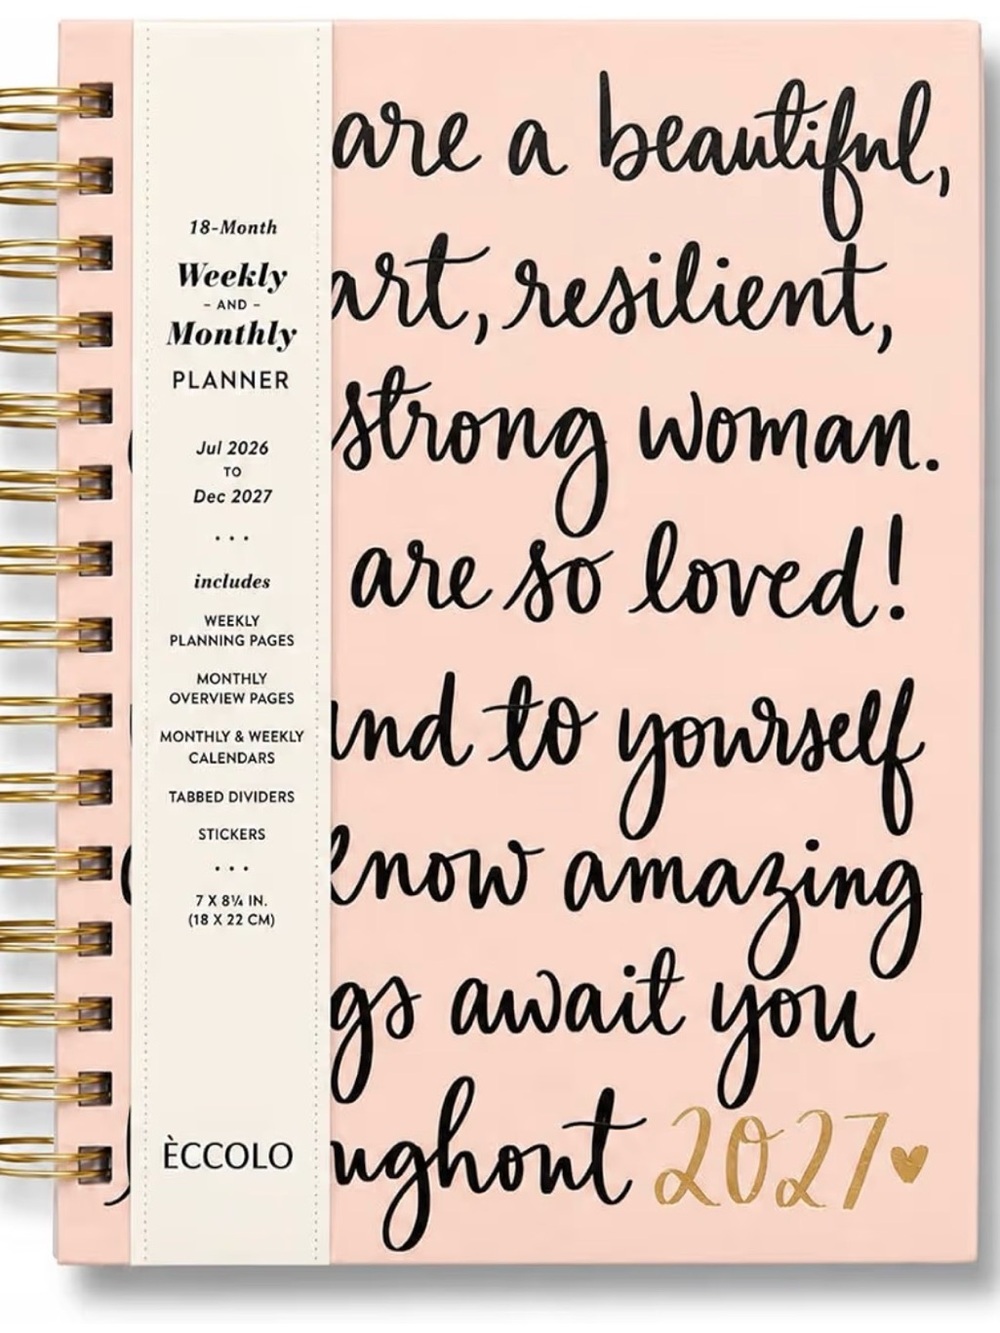 18-Month
Weekly
- AND -
Monthly
PLANNER
Jul 2026
TO
Dec 2027
• • •
includes
WEEKLY
PLANNING PAGES
MONTHLY
OVERVIEW PAGES
MONTHLY & WEEKLY
CALENDARS
TABBED DIVIDERS
STICKERS
• • •
7 X 8¼ IN.
(18 X 22 CM)
ÈCCOLO
are a beautiful,
art, resilient,
strong woman.
are so loved!
ind to yourself
know amazing
gs await you
ughout 2027